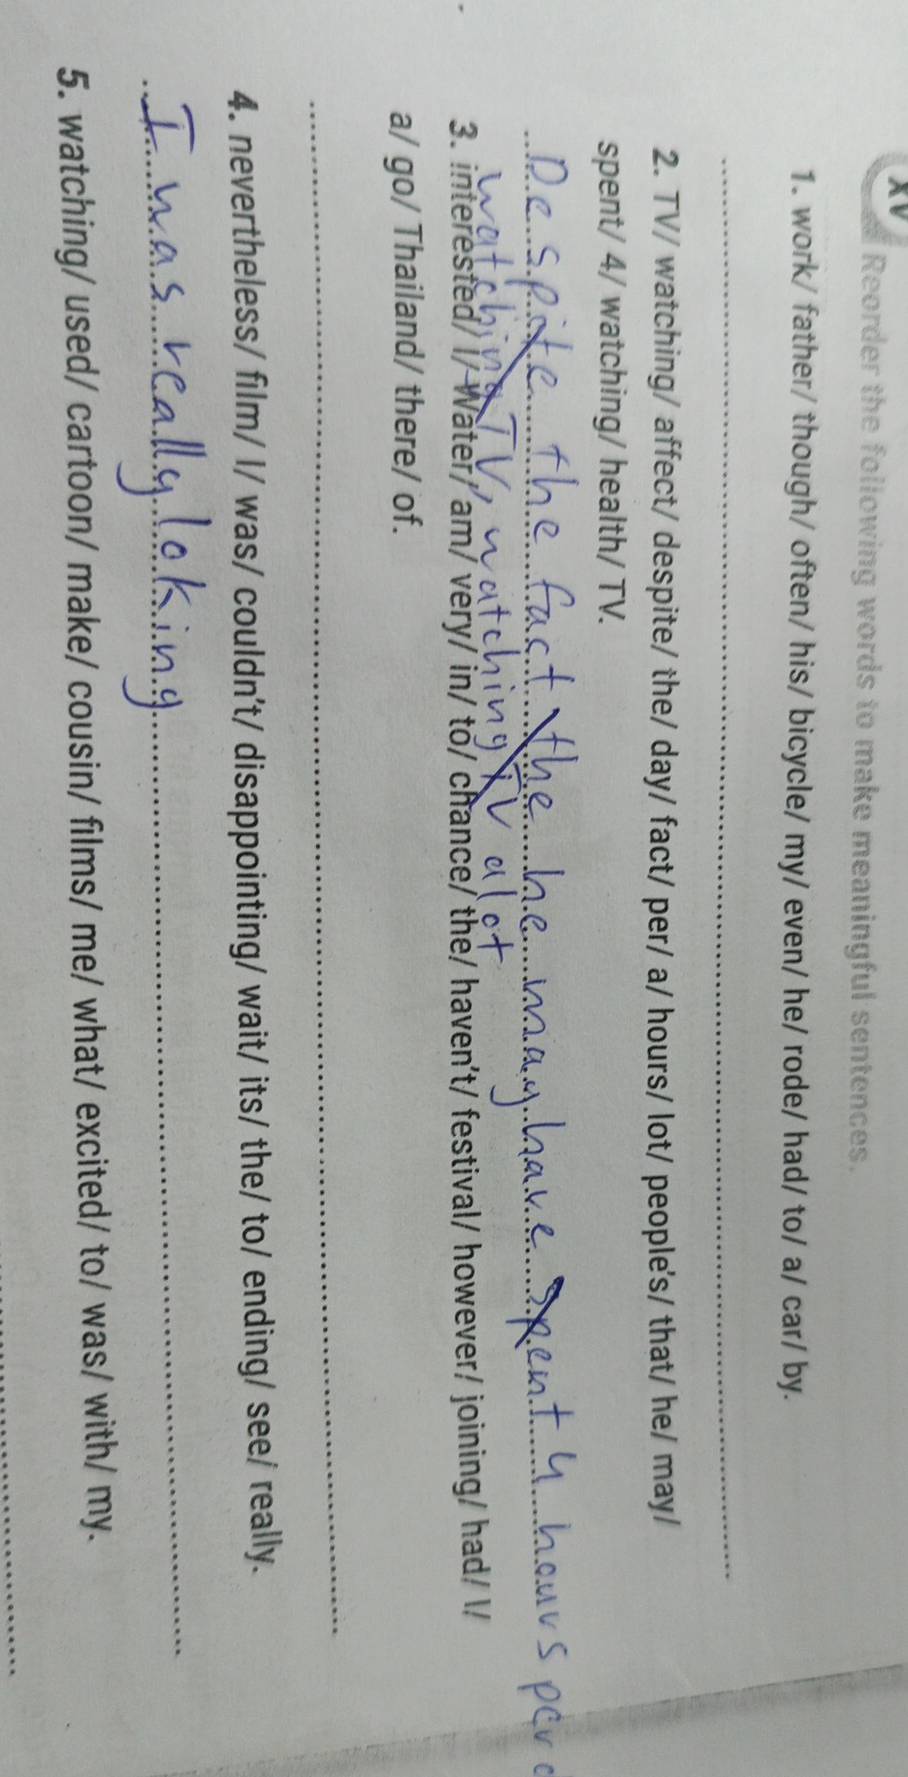 XV Reorder the following words to make meaningful sentences.
1. work/ father/ though/ often/ his/ bicycle/ my/ even/ he/ rode/ had/ to/ a/ car/ by.
2. TV/ watching/ affect/ despite/ the/ day/ fact/ per/ a/ hours/ lot/ people's/ that/ he/ may/
spent/ 4/ watching/ health/ TV.
Despite the fact the he may have spent 4 hours per
watching TV, watching TV alot
3. interested/ I/ Water/ am/ very/ in/ to/ chance/ the/ haven't/ festival/ however/ joining/ had/ I/
a/ go/ Thailand/ there/ of.
4. nevertheless/ film/ I/ was/ couldn't/ disappointing/ wait/ its/ the/ to/ ending/ see/ really.
I was really loking
5. watching/ used/ cartoon/ make/ cousin/ films/ me/ what/ excited/ to/ was/ with/ my.